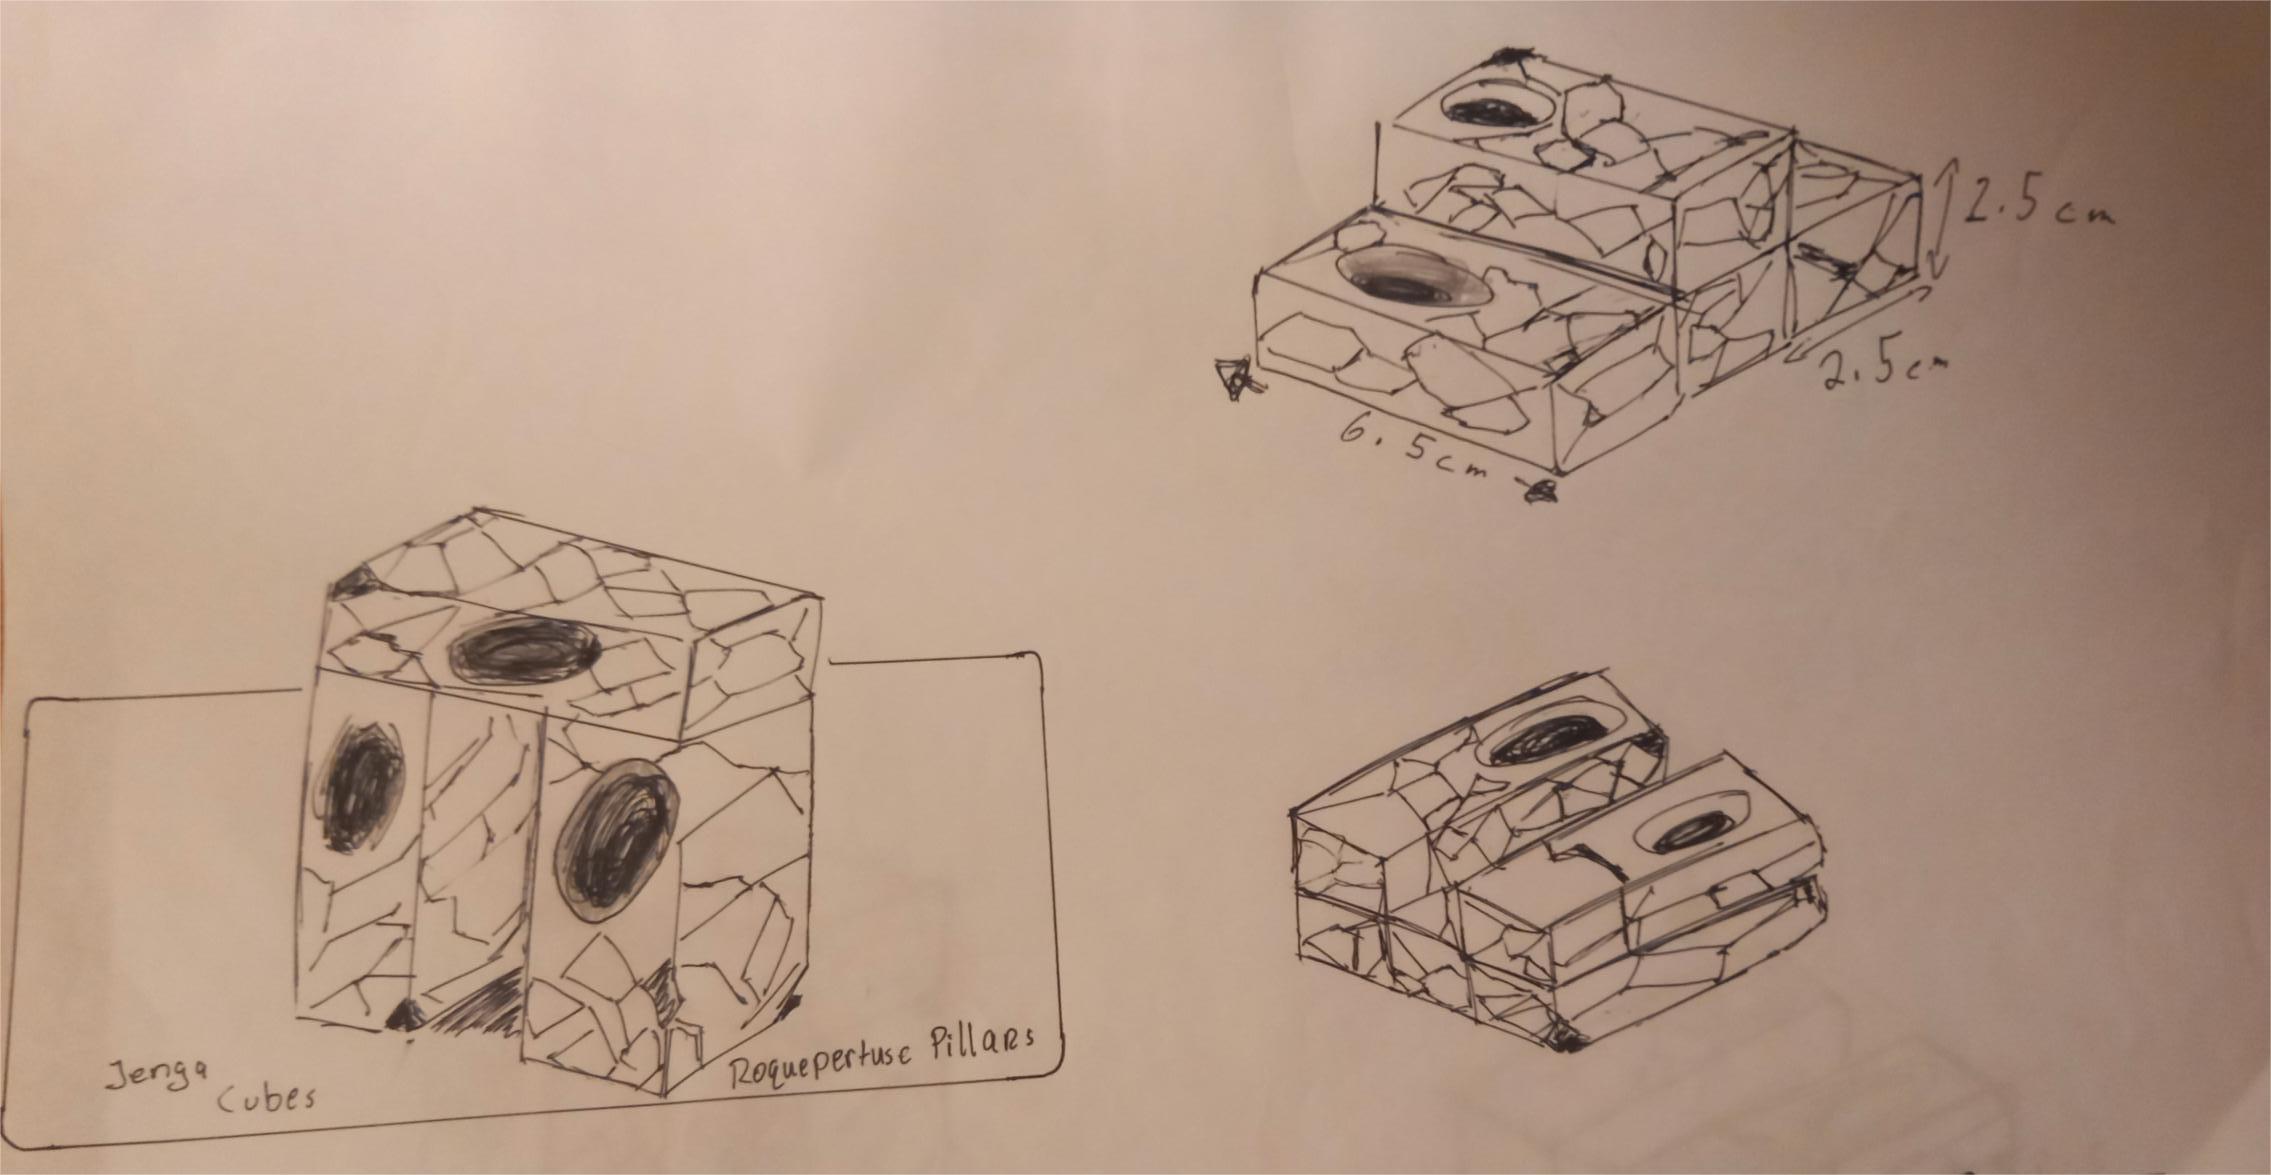 2.5cm
2.5cm
6.5cm
Jenga
Cubes
Roquepertuse Pillars